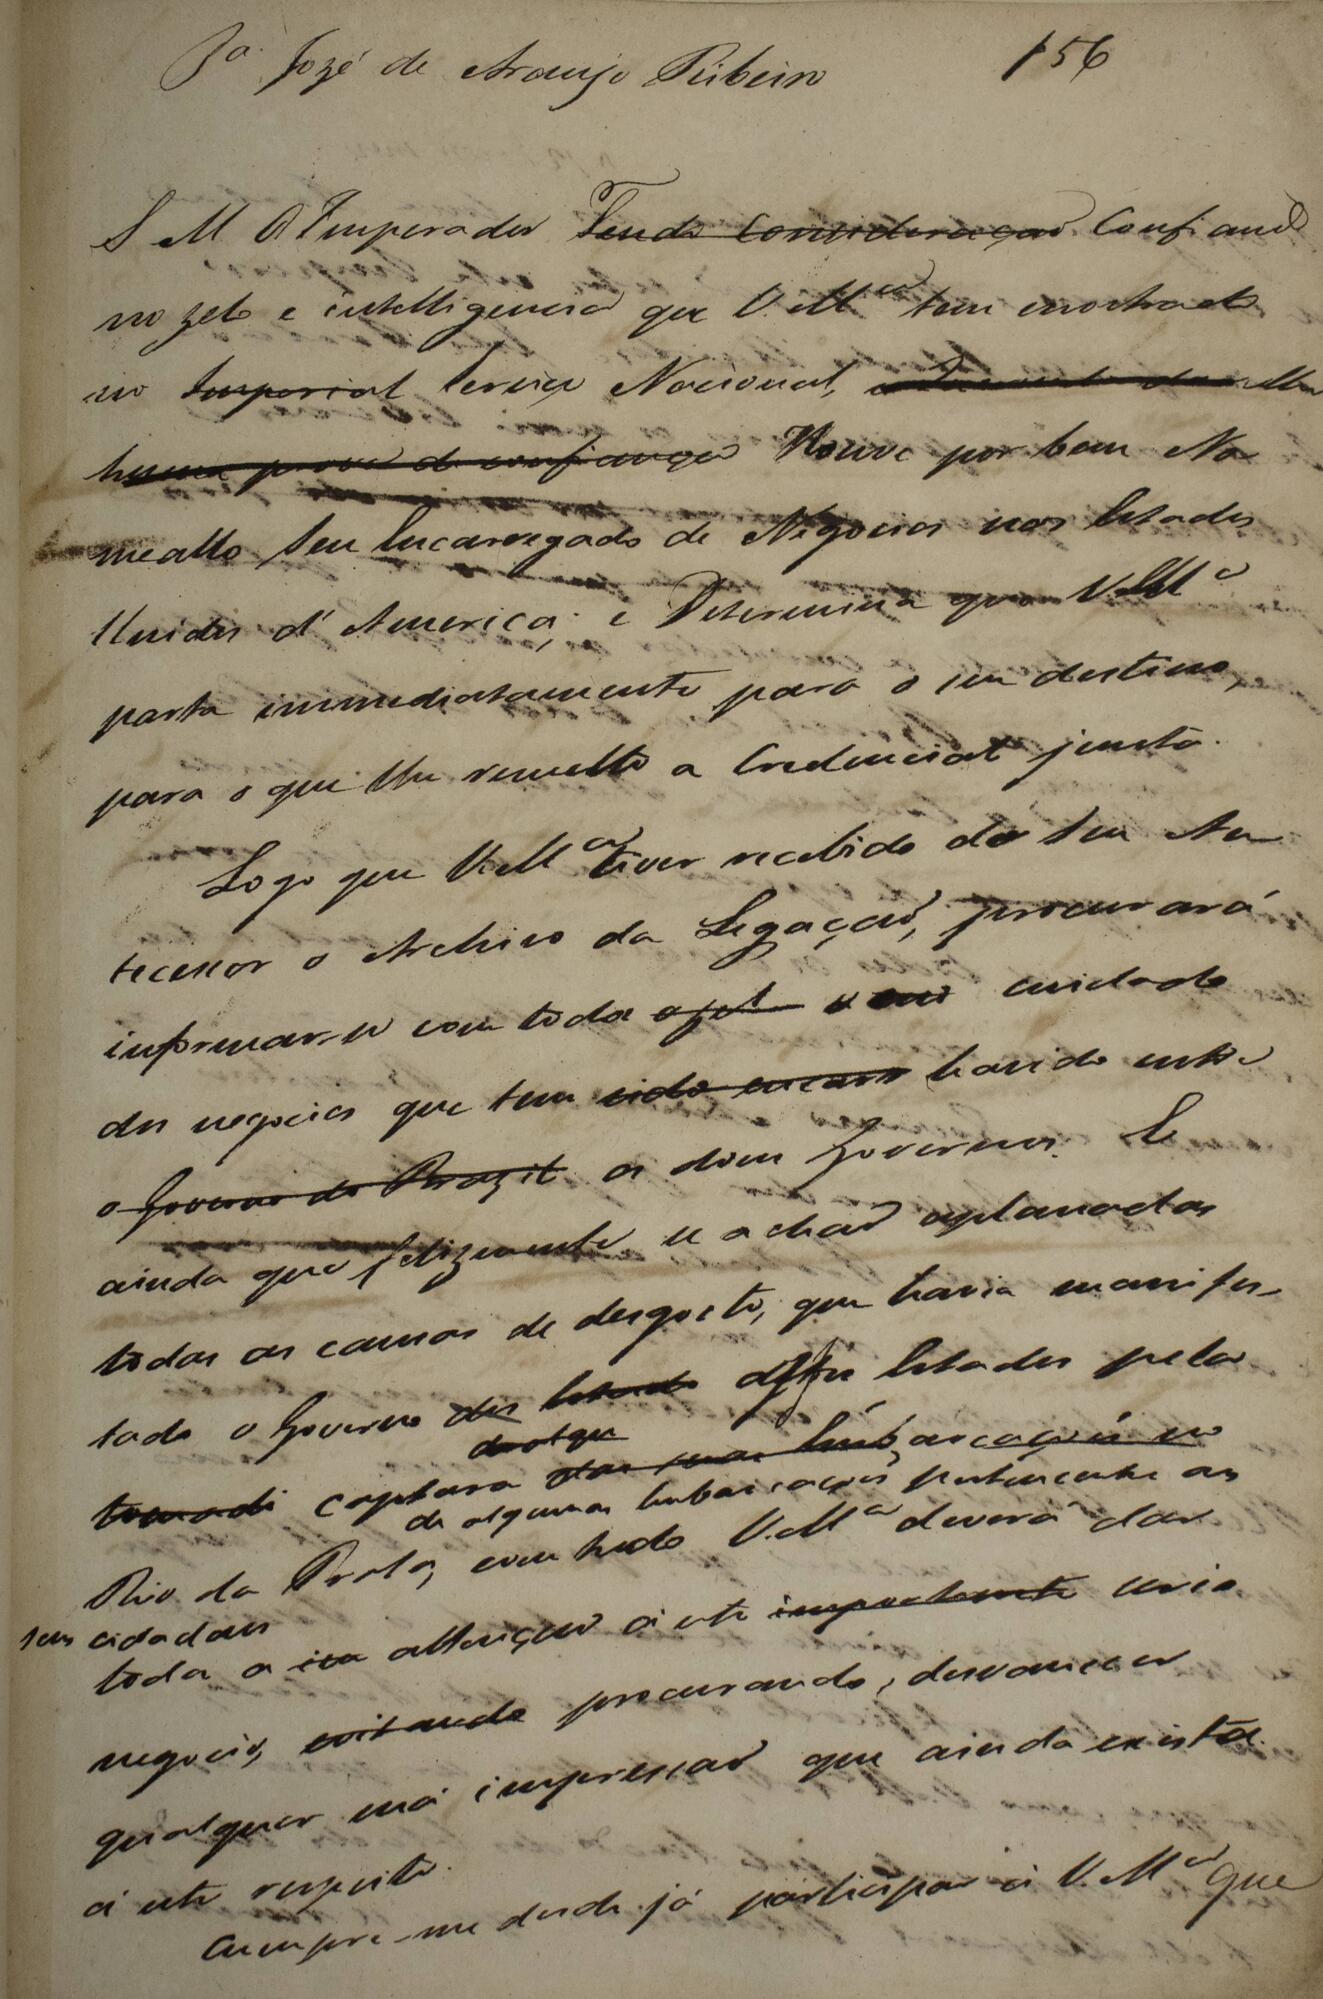 Pª Jozé de Araujo Ribeiro 156
S M O Imperador Tendo Consideraçaõ Confiando
no zelo e intelligencia que V. Mce tem mostrado
no Imperial Serviço Nacional,
huma prova de confiança Houve por bem No
mealLo Seu Encarregado de Negocios nos Estados
Unidos d'America; e Determina que V. Mce
parta immediatamente para o seu destino,
para o que lhe remetto a Credencial junta.
Logo que V. Mce tiver recebido do Seu An
tecessor o Archivo da Legaçaõ, procurará
informar-se com todo o cuidado
dos negocios que tem sido havido entre
o Governo do Brazil os dous Governos. E
ainda que felizmente se achaõ aplanadas
todas as causas de desgosto, que havia manifes-
tado o Governo dos Estado Estados pela
tomadi captura das suas Embarcações no
de algumas Embarcações pertencente aos
Rio da Prata, com tudo V. Mce deverá dar
seus cidadaõs
toda a sua attençaõ á este importante serio
negocio, evitando procurando, desvanecer
qualquer má impressaõ que ainda exista
á este respeito.
Cumpre-me desde já participar á V. Mce que